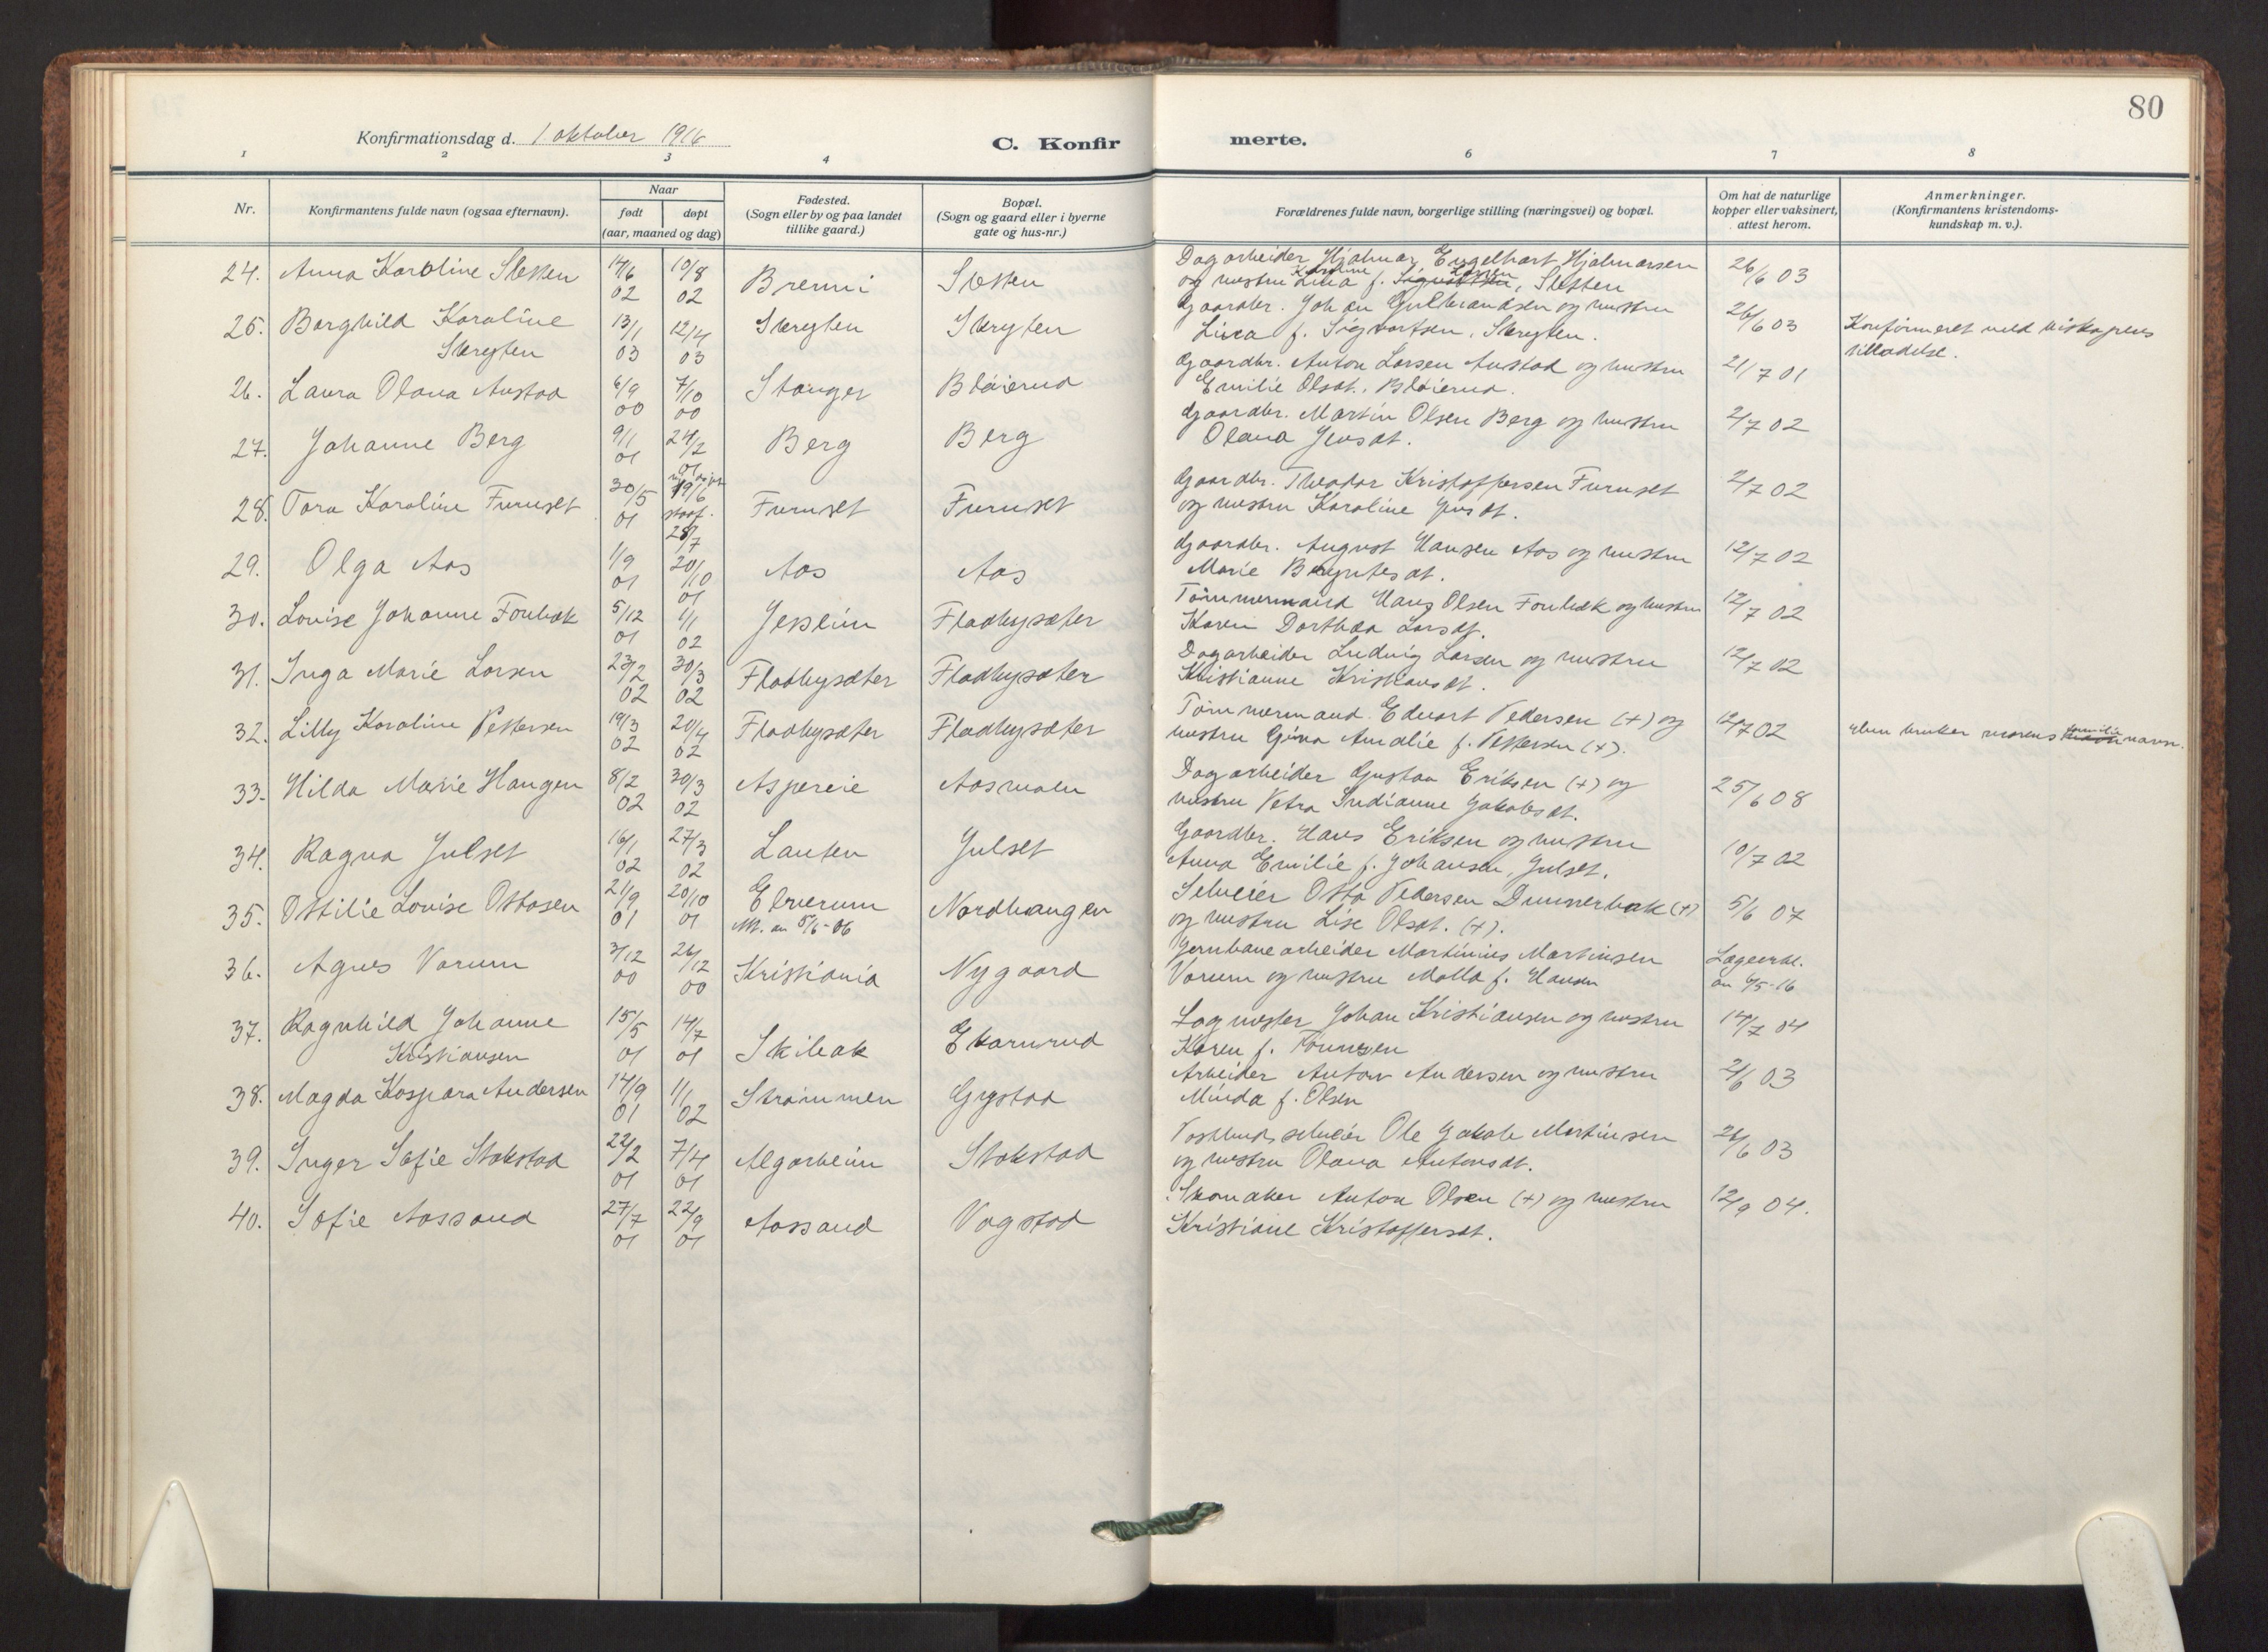 80
Konfirmationsdag d. 1 oktober 1916
C. Konfirmerte.
1 2 3 4 6 7 8
Nr.
Konfirmantens fulde navn (ogsaa efternavn).
Naar
født døpt
(aar, maaned og dag)
Fødested.
(Sogn eller by og paa landet
tillike gaard.)
Bopæl.
(Sogn og gaard eller i byerne
gate og hus-nr.)
Forældrenes fulde navn, borgerlige stilling (næringsvei) og bopæl.
Om hat de naturlige
kopper eller vaksinert,
attest herom.
Anmerkninger.
(Konfirmantens kristendoms-
kundskap m. v.).
24. Anna Karoline Sletten 14/6 02 10/8 02 Brenni Sletten Dagarbeider Hjalmar Engelhart Hjalmarsen 26/6 03
og hustru Karoline f. Larsen, Sletten
25. Borghild Karoline 13/1 03 12/4 03 Skryten Skryten Gaardbr. Johan Gulbrandsen og hustru 26/6 03 Konfirmeret med biskopens
Skryten Lina f. Sigvartsen, Skryten. tilladelse.
26. Laura Olava Austad 6/9 00 7/10 00 Stanger Blåierud Gaardbr. Anton Larsen Austad og hustru 21/7 01
Emilie Olsdt., Blåierud.
27. Johanne Berg 9/1 01 24/2 01 Berg Berg Gaardbr. Martin Olsen Berg og hustru 2/7 02
Olava Jensdt.
28. Tora Karoline Furuset 30/5 01 19/6 28/7 Furuset Furuset Gaardbr. Theodor Kristoffersen Furuset 2/7 02
og hustru Karoline Jensdt.
29. Olga Aas 1/9 01 20/10 01 Aas Aas Gaardbr. August Hansen Aas og hustru 12/7 02
Marie Berntesdt.
30. Lovise Johanne Fonbæk 5/12 01 1/1 02 Jessheim Fladbysæter Tømmermand Hans Olsen Fonbæk og hustru 12/7 02
Karen Dorthea Larsdt.
31. Inga Marie Larsen 23/2 02 30/3 02 Fladbysæter Fladbysæter Dagarbeider Ludvig Larsen og hustru 12/7 02
Kristianne Kristiansdt.
32. Lilly Karoline Pettersen 19/3 02 20/4 02 Fladbysæter Fladbysæter Tømmermand Edvart Pedersen (+) og 12/7 02 bruker morens familienavn.
hustru Gina Amalie f. Pettersen (+).
33. Hilda Marie Haugen 8/2 02 30/3 02 Aspereie Aasmoen Dagarbeider Gustav Eriksen (+) og 25/6 08
hustru Petra Indianne Jakobsdt.
34. Ragna Julset 16/1 02 27/3 02 Lauten Julset Gaardbr. Hans Eriksen og hustru 10/7 02
Anna Emilie f. Johansen, Julset.
35. Ottilie Lovise Ottosen 21/9 01 20/10 01 Elverum Nordhaugen Selveier Otto Pedersen Dunnerbak (+) 5/6 07
Att. av 5/6-06 og hustru Lise Olsdt. (+).
36. Agnes Vorum 3/12 00 26/12 00 Kristiania Nygaard Jernbanearbeider Martinius Martinsen Lægeerkl.
Vorum og hustru Malla f. Hansen av 6/5-16
37. Ragnhild Johanne 15/5 01 14/7 01 Skibak Ekornrud Lagmester Johan Kristiansen og hustru 14/7 04
Kristiansen Karen f. Tønnesen
38. Magda Kaspara Andersen 14/9 01 1/1 02 Strømmen Gystad Arbeider Anton Andersen og hustru 2/6 03
Minda f. Olsen
39. Inger Sofie Stokstad 22/2 01 7/4 01 Algarheim Stokstad Ole Jakob Martinsen 26/6 03
og hustru Olava Antonsdt.
40. Sofie Aassand 27/7 01 22/9 01 Aassand Vogstad Skomaker Anton Olsen (+) og hustru 12/9 04.
Kristiane Kristoffersdt.